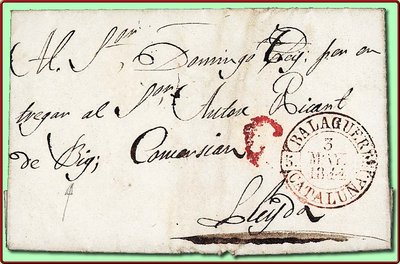 Al Sor. Domingo Rey; per en
tregar al Sor. Anton Ricart
de Big; Comersian
Lleyda
BALAGUER
3
MAY.
1844
CATALUÑA